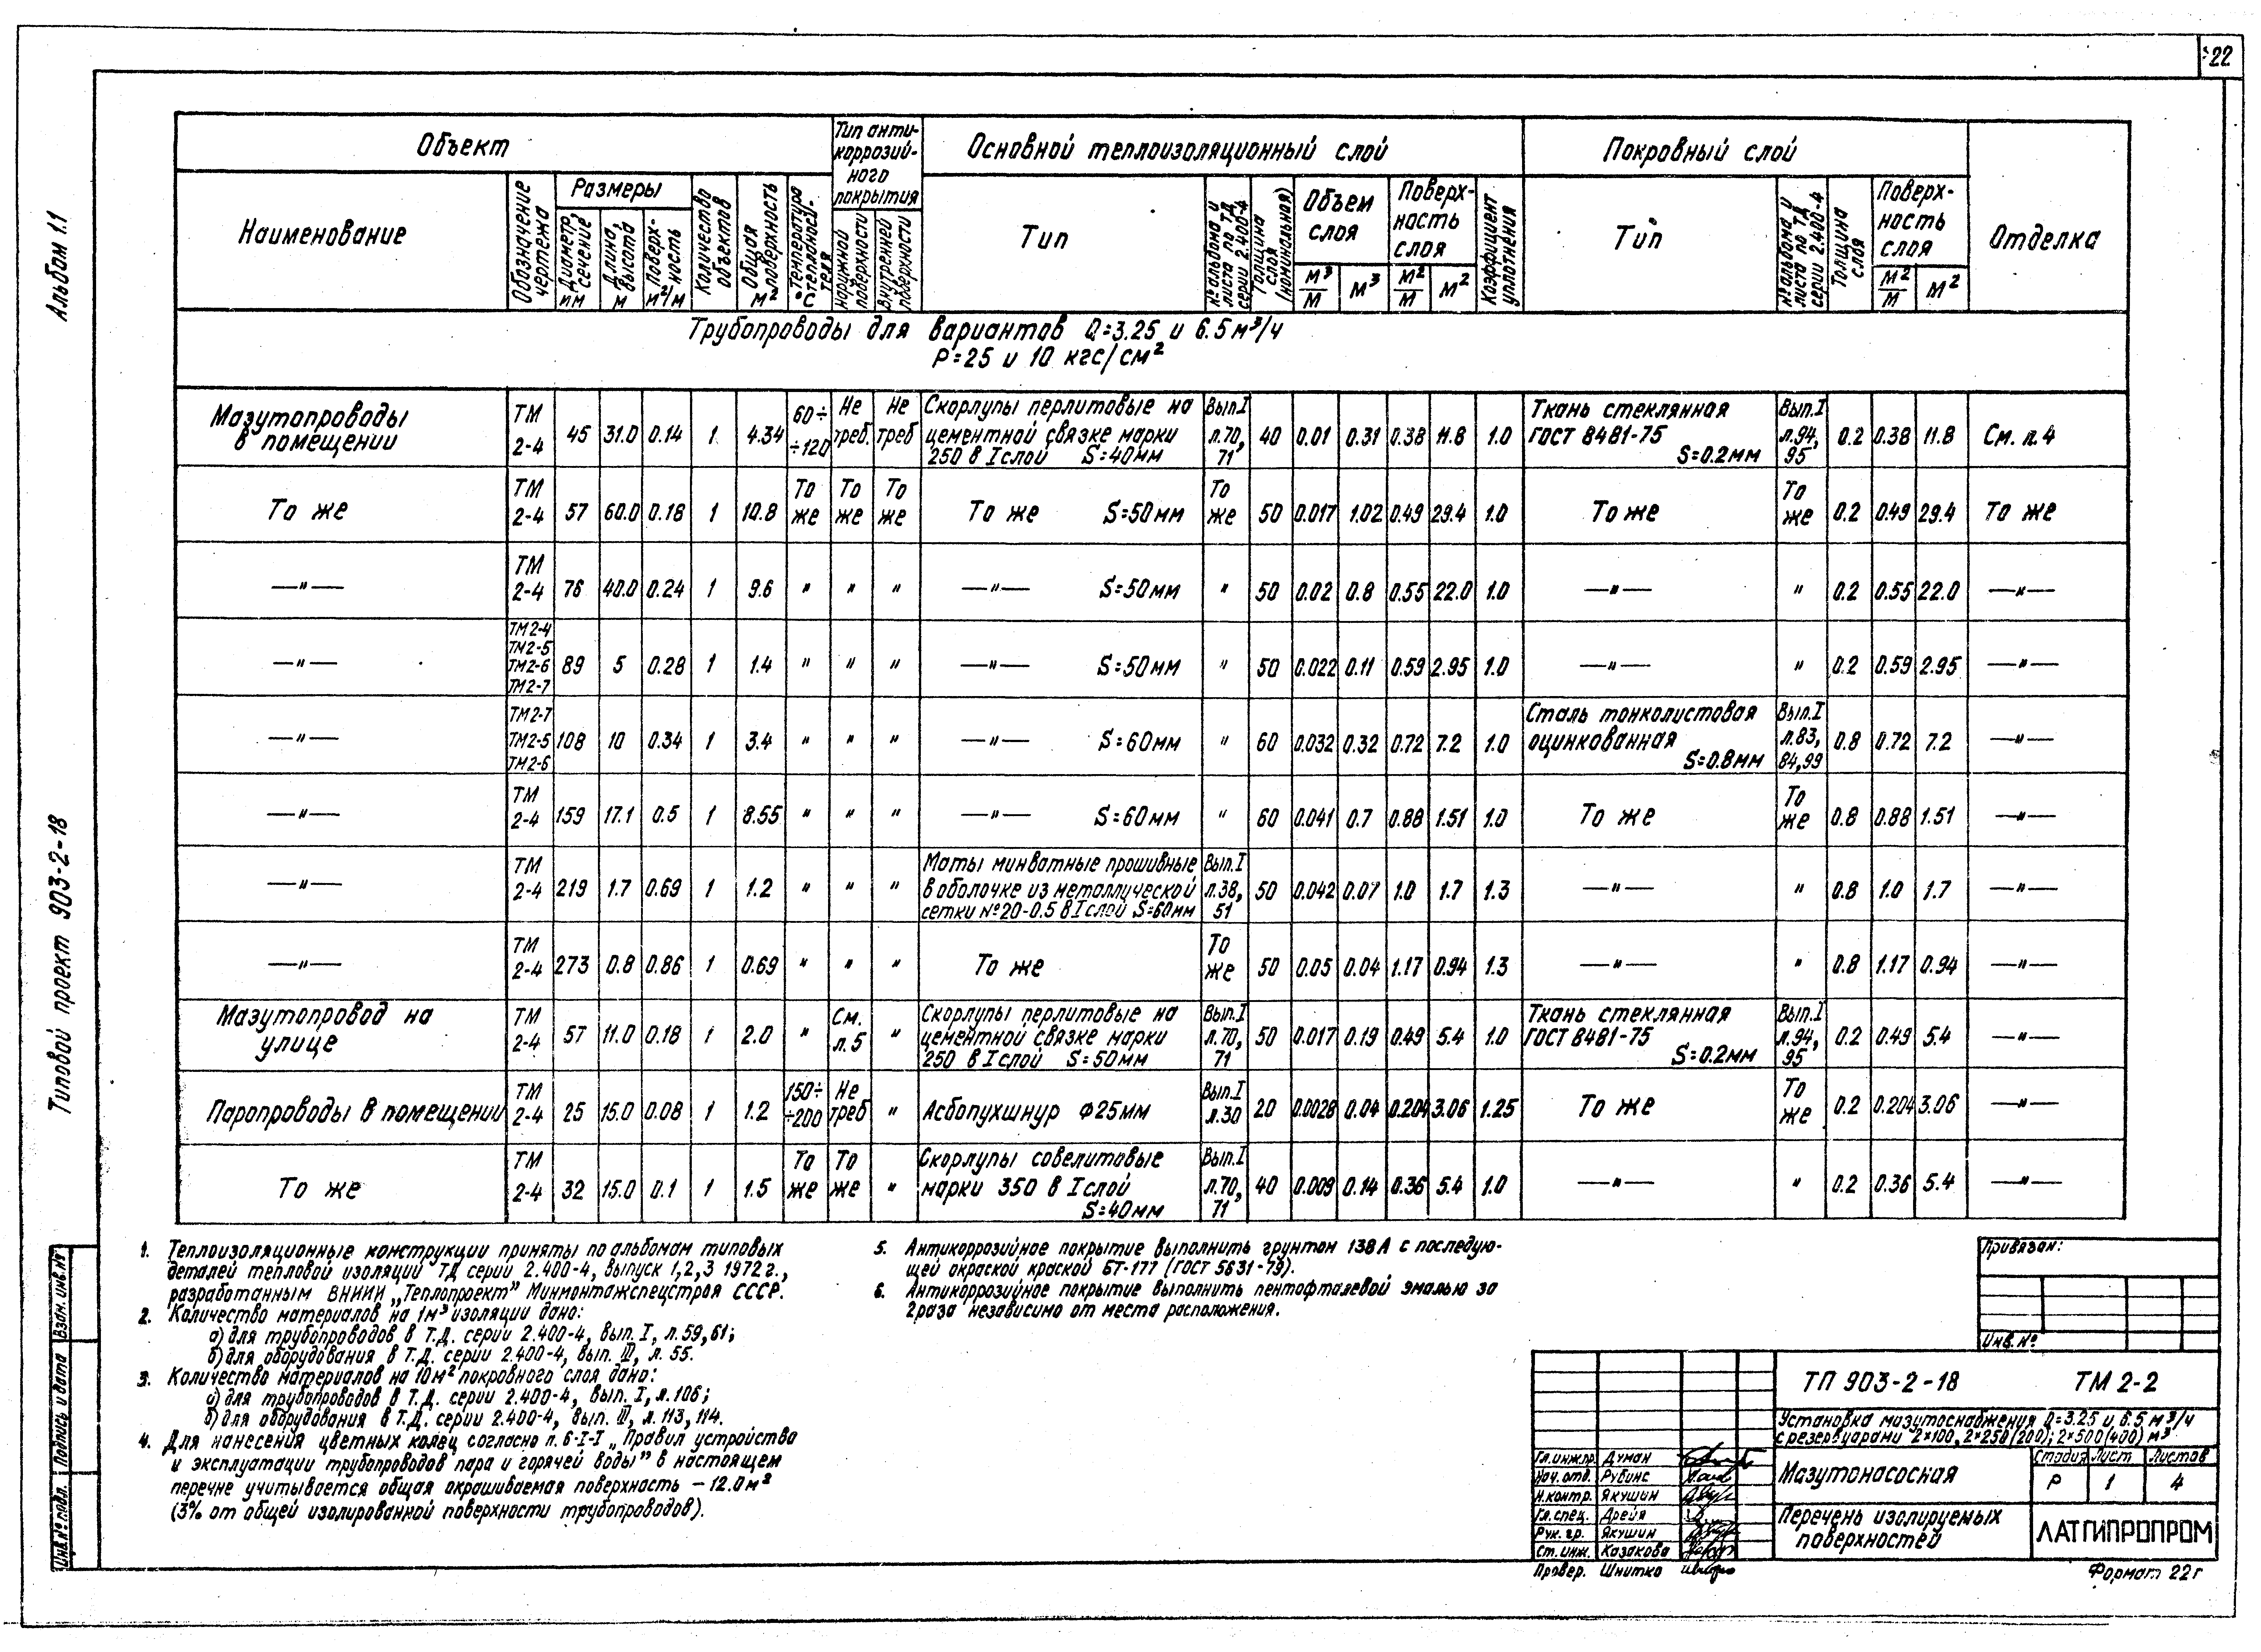 22
Альбом 1.1
Типовой проект 903-2-18
Объект
Тип анти-
коррозий-
ного
покрытия
Основной теплоизоляционный слой
Покровный слой
Отделка
Наименование
Обозначение чертежа
Размеры
Диаметр, сечение мм
Длина, высота м
Поверх-ность м²/м
Количество объектов
Общая поверхность м²
Температура теплоноси-теля °С
наружной поверхности
внутренней поверхности
Тип
№ альбома и листа по ТД серии 2.400-4
Толщина слоя (номинальная)
Объем слоя
м³/м
м³
Поверх-ность слоя
м²/м
м²
Коэффициент уплотнения
Тип
№ альбома и листа по ТД серии 2.400-4
Толщина слоя
Поверх-ность слоя
м²/м
м²
Трубопроводы для вариантов Q=3.25 и 6.5 м³/ч
Р=25 и 10 кгс/см²
Мазутопроводы в помещении ТМ 2-4 45 31.0 0.14 1 4.34 60÷ ÷120 Не треб. Не треб Скорлупы перлитовые на цементной связке марки 250 в I слой S=40мм Вып.I л.70, 71 40 0.01 0.31 0.38 11.8 1.0 Ткань стеклянная ГОСТ 8481-75 S=0.2мм Вып.I л.94, 95 0.2 0.38 11.8 См. п.4
То же ТМ 2-4 57 60.0 0.18 1 10.8 То же То же То же То же S=50мм То же 50 0.017 1.02 0.49 29.4 1.0 То же То же 0.2 0.49 29.4 То же
—"— ТМ 2-4 76 40.0 0.24 1 9.6 " " " —"— S=50мм " 50 0.02 0.8 0.55 22.0 1.0 —"— " 0.2 0.55 22.0 —"—
—"— ТМ2-4 ТМ2-5 ТМ2-6 ТМ2-7 89 5 0.28 1 1.4 " " " —"— S=50мм " 50 0.022 0.11 0.59 2.95 1.0 —"— " 0.2 0.59 2.95 —"—
—"— ТМ2-7 ТМ2-5 ТМ2-6 108 10 0.34 1 3.4 " " " —"— S=60мм " 60 0.032 0.32 0.72 7.2 1.0 Сталь тонколистовая оцинкованная S=0.8мм Вып.I л.83, 84,99 0.8 0.72 7.2 —"—
—"— ТМ 2-4 159 17.1 0.5 1 8.55 " " " —"— S=60мм " 60 0.041 0.7 0.88 1.51 1.0 То же То же 0.8 0.88 1.51 —"—
—"— ТМ 2-4 219 1.7 0.69 1 1.2 " " " Маты минватные прошивные в оболочке из металлической сетки №20-0.5 в I слой S=60мм Вып.I л.38, 51 50 0.042 0.07 1.0 1.7 1.3 —"— " 0.8 1.0 1.7 —"—
—"— ТМ 2-4 273 0.8 0.86 1 0.69 " " " То же То же 50 0.05 0.04 1.17 0.94 1.3 —"— " 0.8 1.17 0.94 —"—
Мазутопровод на улице ТМ 2-4 57 11.0 0.18 1 2.0 " См. п.5 " Скорлупы перлитовые на цементной связке марки 250 в I слой S=50мм Вып.I л.70, 71 50 0.017 0.19 0.49 5.4 1.0 Ткань стеклянная ГОСТ 8481-75 S=0.2мм Вып.I л.94, 95 0.2 0.49 5.4 —"—
Паропроводы в помещении ТМ 2-4 25 15.0 0.08 1 1.2 150÷ ÷200 Не треб " Асбопухшнур ф25мм Вып.I л.30 20 0.0028 0.04 0.204 3.06 1.25 То же То же 0.2 0.204 3.06 —"—
То же ТМ 2-4 32 15.0 0.1 1 1.5 То же То же " Скорлупы совелитовые марки 350 в I слой S=40мм Вып.I л.70, 71 40 0.009 0.14 0.36 5.4 1.0 —"— " 0.2 0.36 5.4 —"—
1. Теплоизоляционные конструкции приняты по альбомам типовых
деталей тепловой изоляции ТД серии 2.400-4, выпуск 1,2,3 1972г.,
разработанным ВНИИ „Теплопроект" Минмонтажспецстроя СССР.
2. Количество материалов на 1м³ изоляции дано:
а) для трубопроводов в Т.Д. серии 2.400-4, вып. I, л.59,61;
б) для оборудования в Т.Д. серии 2.400-4, вып. III, л. 55.
3. Количество материалов на 10м² покровного слоя дано:
а) для трубопроводов в Т.Д. серии 2.400-4, вып. I, л.106;
б) для оборудования в Т.Д. серии 2.400-4, вып. III, л. 113, 114.
4. Для нанесения цветных колец согласно п. 6-I-I „Правил устройства
и эксплуатации трубопроводов пара и горячей воды" в настоящем
перечне учитывается общая окрашиваемая поверхность — 12.0м²
(3% от общей изолированной поверхности трубопроводов).
5. Антикоррозийное покрытие выполнить грунтом 138А с последую-
щей окраской краской БТ-177 (ГОСТ 5631-79).
6. Антикоррозийное покрытие выполнить пентофталевой эмалью за
2 раза независимо от места расположения.
Привязан:
Инв. №
ТП 903-2-18 ТМ 2-2
Установка мазутоснабжения Q=3.25 и 6.5 м³/ч
с резервуарами 2×100, 2×250(200); 2×500(400) м³
Гл.инж.пр. Думан
Нач. отд. Рубинс
Н.контр. Якушин
Гл.спец. Дрейя
Рук. гр. Якушин
Ст. инж. Казакова
Провер. Шнитко
Мазутонасосная
Стадия Лист Листов
Р 1 4
Перечень изолируемых
поверхностей
ЛАТГИПРОПРОМ
Формат 22г
Взам. инв.№
Подпись и дата
Инв.№ подл.